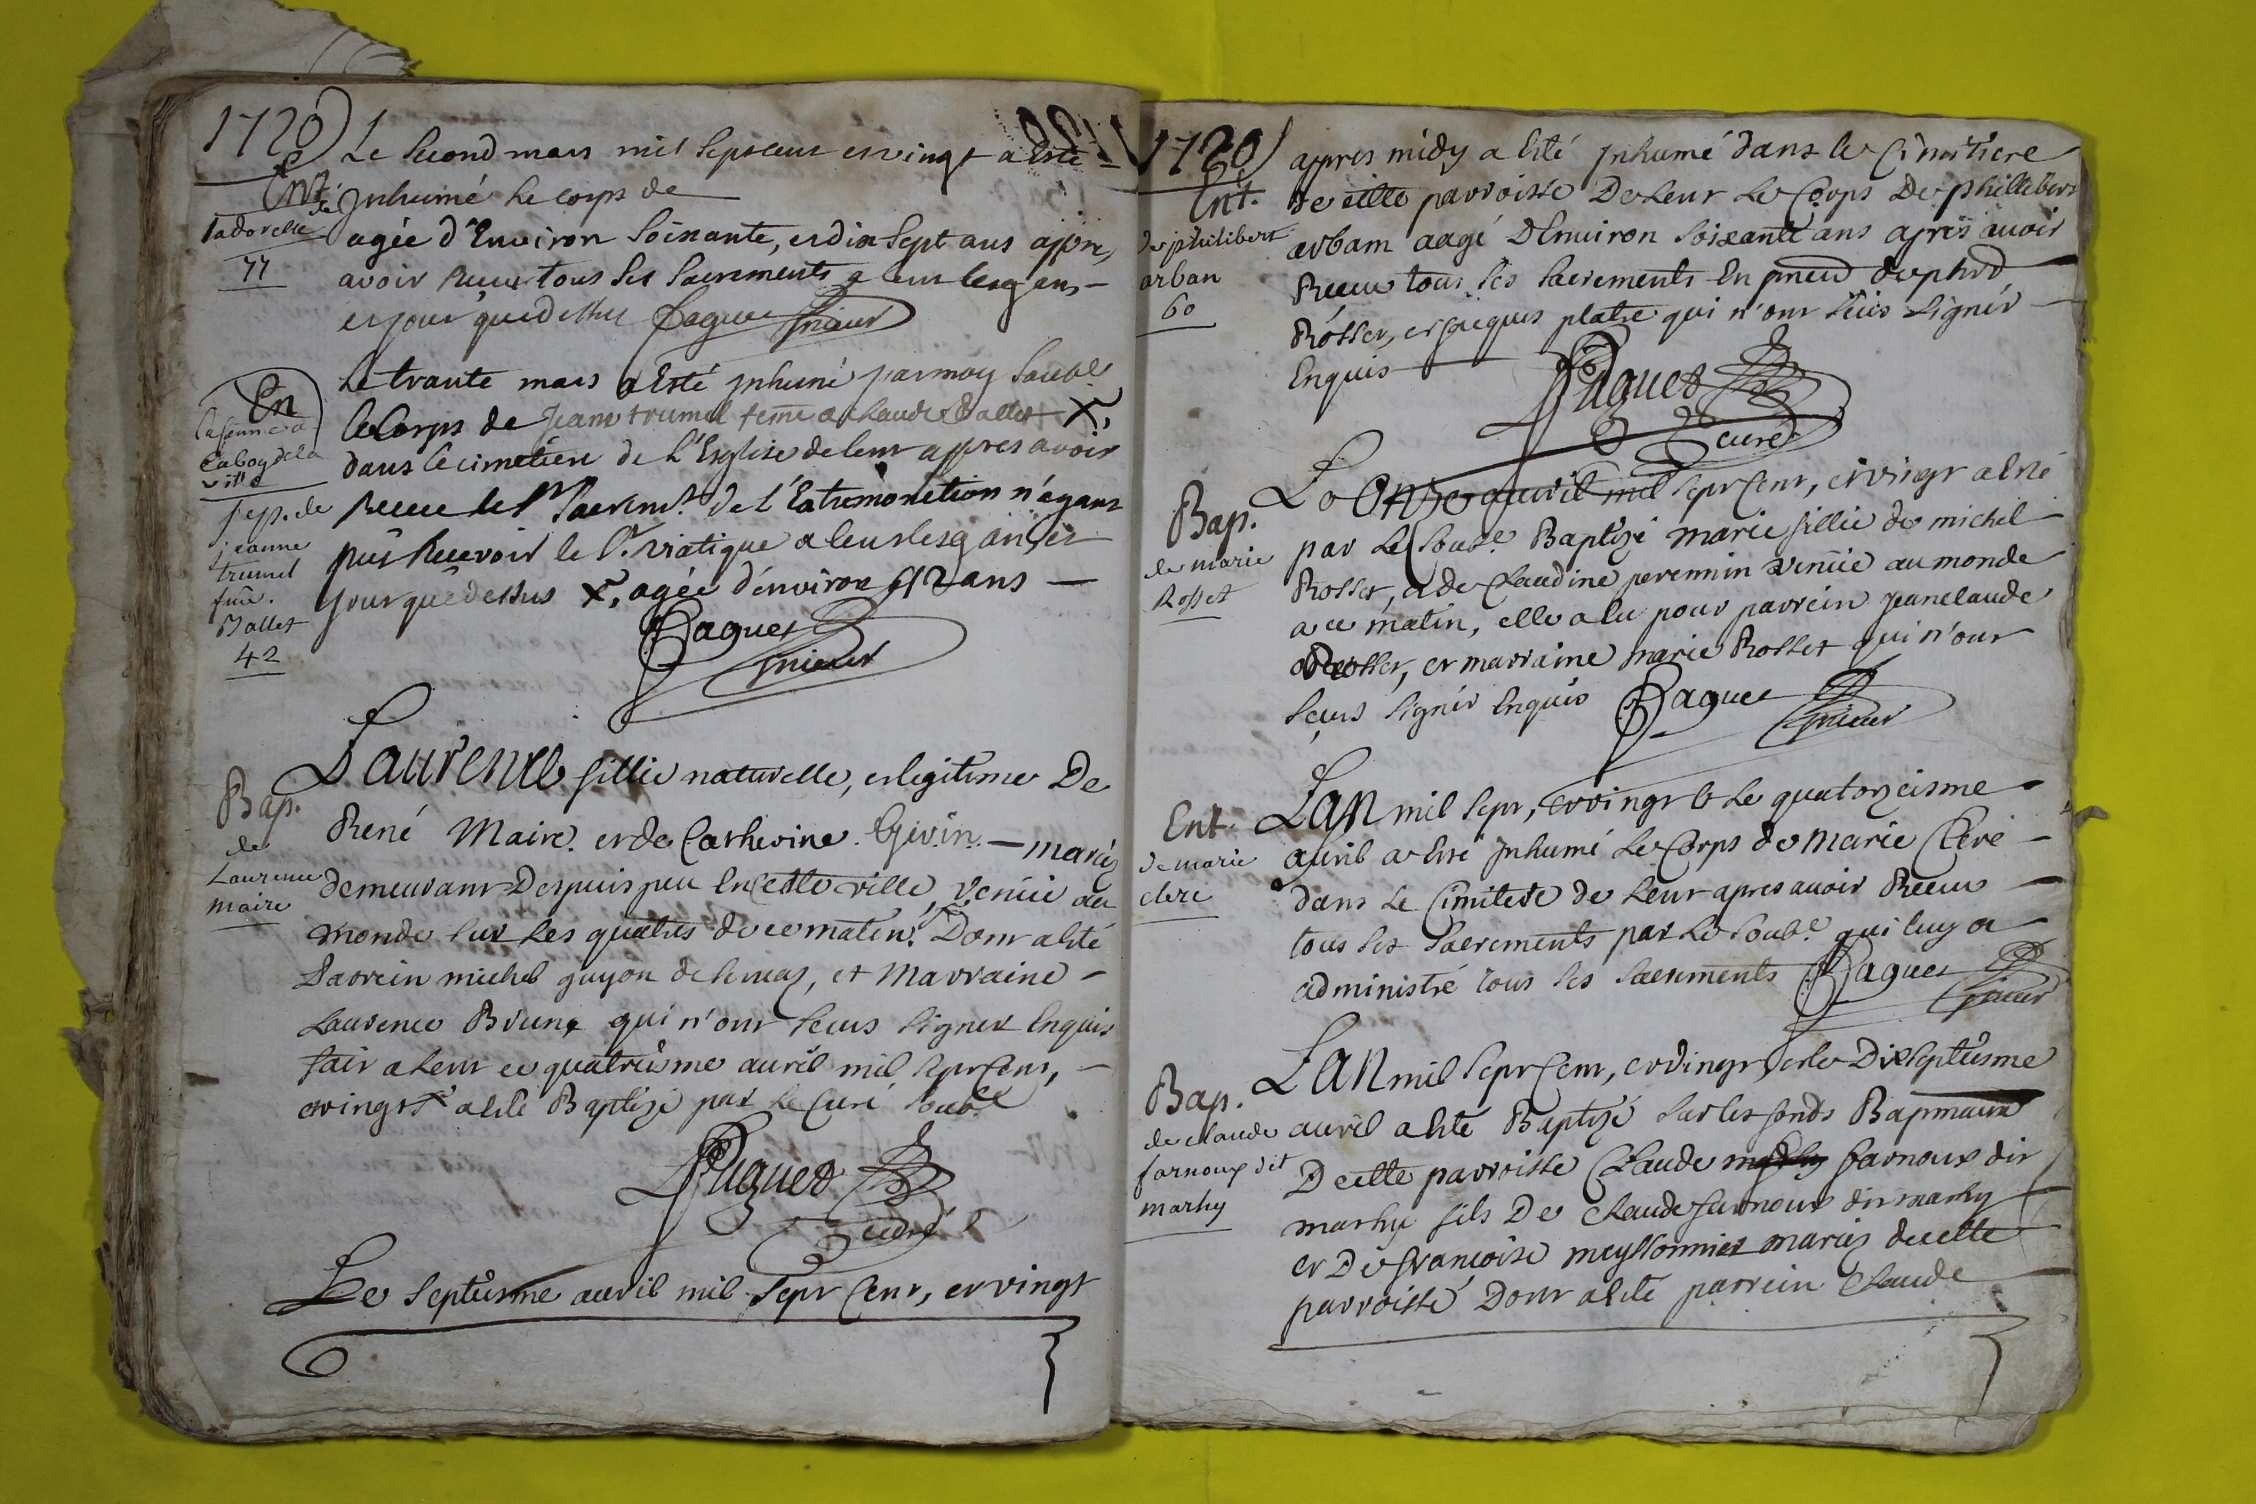 1720
Le second mars mil sept cent et vingt a esté
Ent.
de
ladorelle
77
Inhumé le corps de
agée d'Environ soixante, et dix sept ans appre,
avoir receu tous ses sacrements a leur les gens,
et jour que dessus Paguet prieur
En
la femme a
cabog de la
ville
sep. de
jeanne
trumel
fme.
Ballet
42
Le trante mars a Esté Inhumé par moy soubs.
le Corps de Jeane trumel feme a claude Ballet X,
dans le cimetiere de l'Eglise de leur appres avoir
receue le st sacremt. de l'Extremonction n'éyant
pus Recevoir le st. viatique a leur les an, et
jour que dessus X, agée d'énviron 42 ans
Paguet
prieur
Bap.
de
Laurence
maire
Laurence fillie naturelle, et legitime De
René Maire. et de Catherine. Givin. mariez
demeurant Depuis peu En cette ville, venüe au
monde sur les quatres de ce matin. Dont a esté
Parrein michel guyon de lemaz, et Marraine
Laurence Brune qui n'ont sceus signer Enquis
fait a leur ce quatrieme auril mil sept Cent,
et vingt a esté Baptizé par le Curé soubs.
Puguet
curé
Le septiesme auril mil sept Cent, et vingt
1720
Ent.
de philibert
arban
60
appres midy a esté Inhumé dans le Cimetiere
de cette parroisse De Leur Le Corps De phillebert
arbam aagé D'Enuiron soixante ans aprés auoir
Receu tous ses sacrements En
Rosset, et jacques platre qui n'ont sceus signér
Enquis
Puguet
curé
Bap.
de marie
Rosset
Le Onze auril mil sept Cent, et vingt a esté
par Le Soubs. Baptizé marie fillie de michel
Rosset, et de Claudine perennin venüe au monde
a ce matin, elle a eu pour parrein Jeanclaude
Rosset, et marraine marie Rosset qui n'ont
sceus signér Enquis Paguet
prieur
Ent.
de marie
clere
LAN mil sept, et vingt & le quatorzeisme
auril a esté Inhumé Le Corps de Marie Clere
dans Le Cimitere de Leur apres auoir Receu
tous ses sacrements par Le Soubs. qui luy a
administré tous ses sacrements Paguet
prieur
Bap.
de claude
farnoux dit
marhy
LAN mil sept Cent, et vingt, et le Dix septiesme
auril a esté Baptizé sur les fonds Baptismaux
De cette parroisse Claude farnoux dit
marhy fils De Claude farnoux dit marhy
et De françoise meyssonnier mariez de cette
parroisse Dont a esté parrein Claude